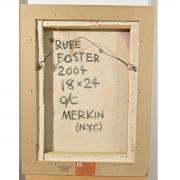 "RUBE
FOSTER"
2004
18x24
O/C
MERKIN
(N.Y.C)